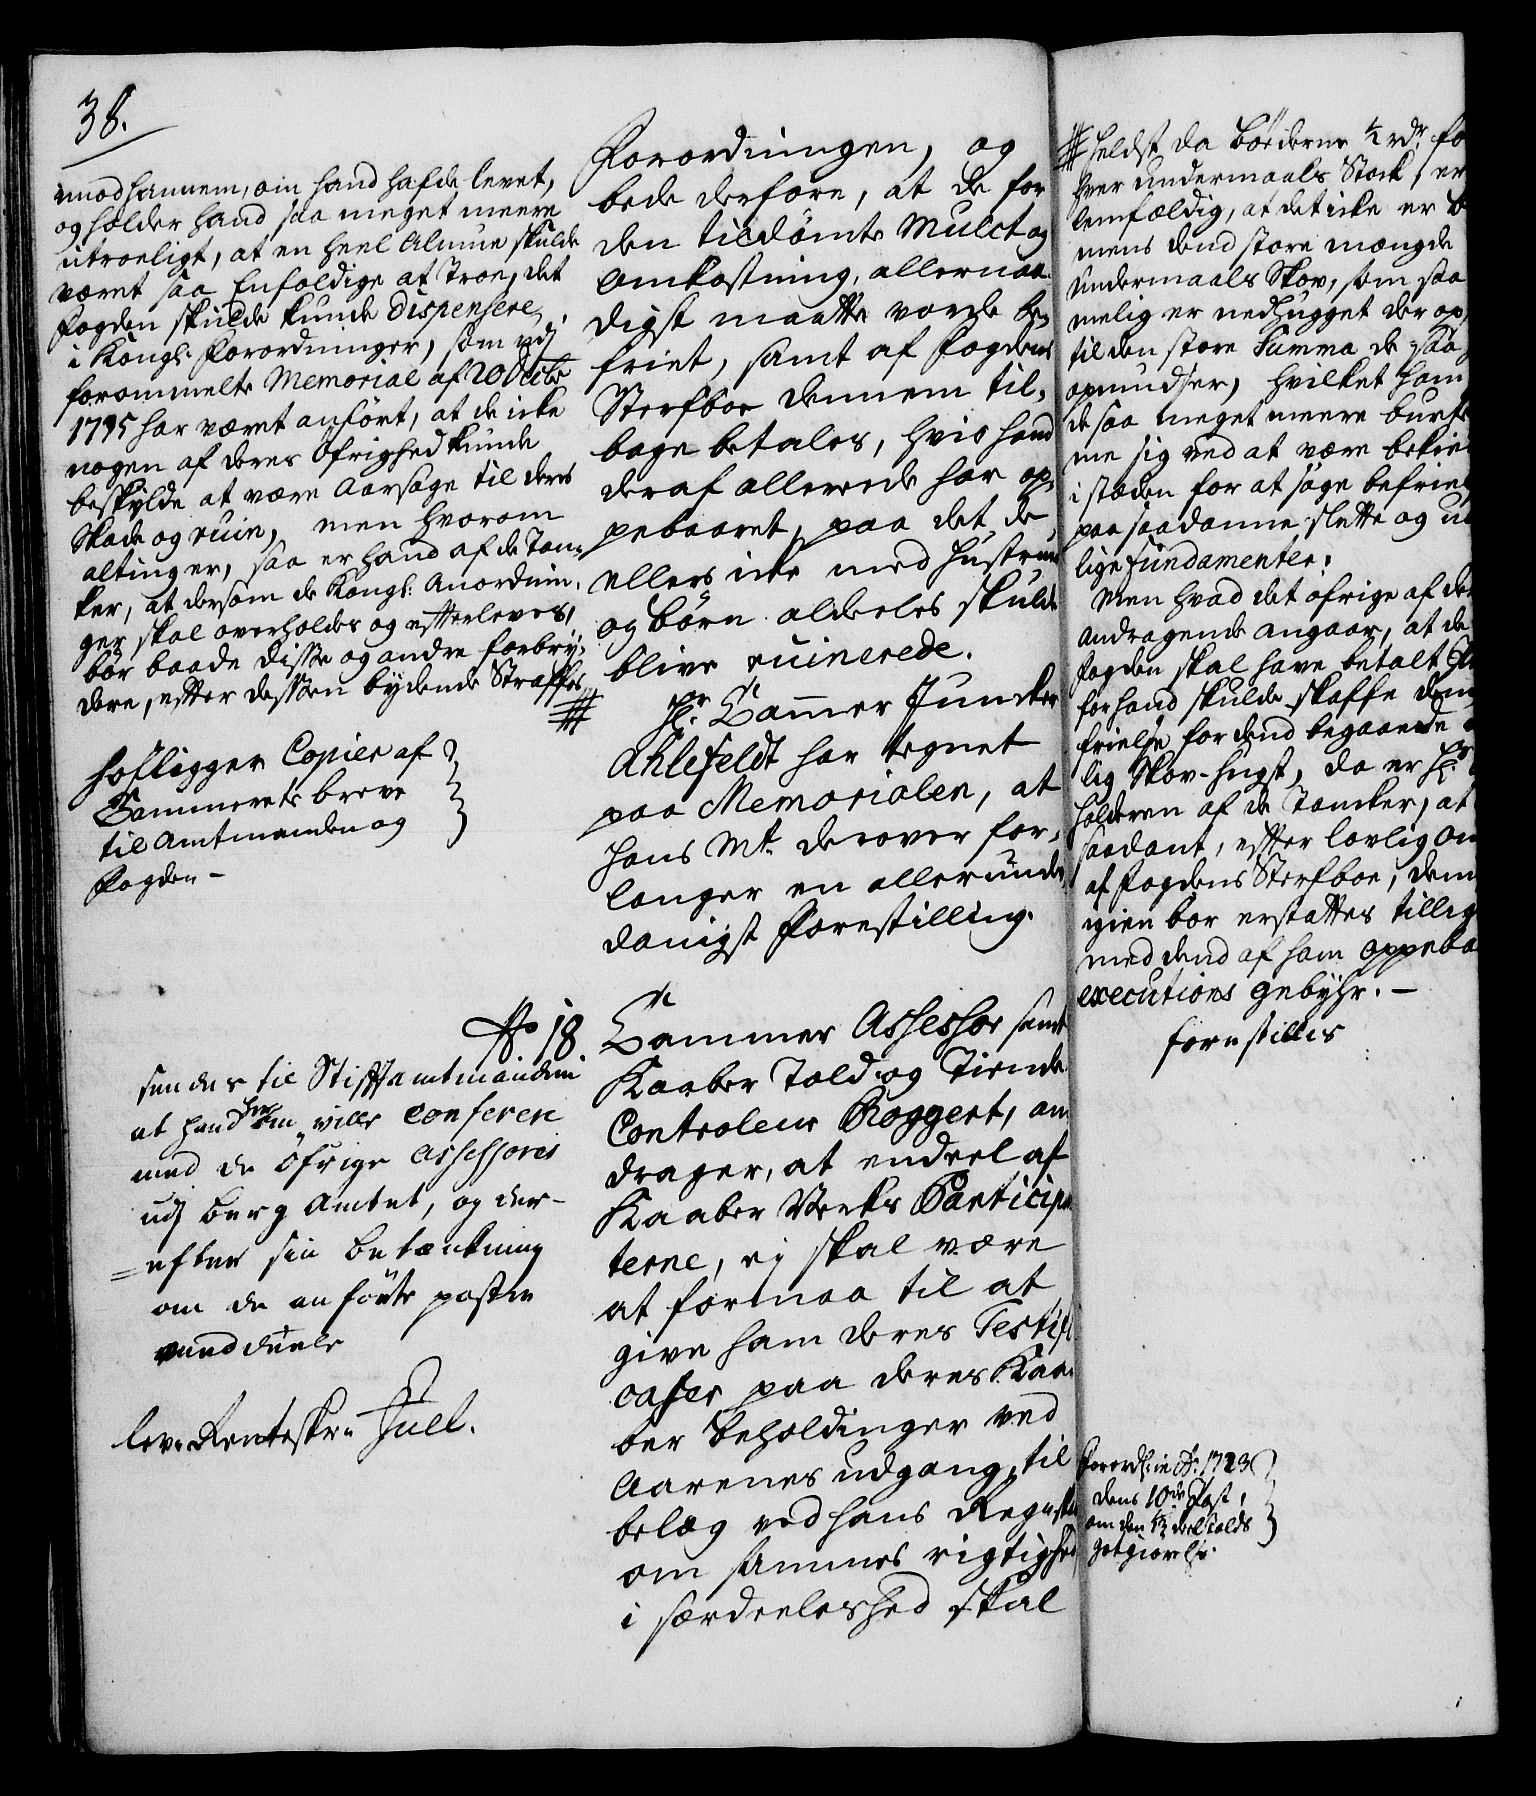 38.
mod hannem, om hand hafde levet,
og holder hand saa meget meere
utroeligt, at en heel Almue skulde
været saa Enfoldige at troe, det
fogden skulde kunde dispensere
i Kongl: forordninger, som udj
forommelte Memorial af 20 Octbr
1735 har været anført, at de icke
nogen af deres Øfrighed kunde
beskylde at være aarsage til deres
Skade og ruin, men hvorom
alting er, saa er hand af de Tan-
ker, at dersom de Kongl: Anordnin-
ger skal overholdes og effterleves,
bør baade disse og andre forbry-
dere, effter dessen bydende Straffes
hosligger Copier af
Cammerets breve
til Amtmanden og
fogden -
forordningen, og
bede derfore, at de for
den tildømte Mulct og
omkostning, allernaa-
digst maatte vorde be-
friet, samt af fogdens
Sterfboe dennem til-
bage betales, hvis hand
deraf allerede har op-
pebaaret, paa det de
ellers icke med hustrue
og børn aldeeles skulde
blive ruinerede.
Hr. Cammer Juncker
Ahlefeldt har tegnet
paa Memorialen, at
hans Mt. derover for-
langer en allerunder-
danigst forestilling.
No 18
Cammer Assessor samt
Kaaber Told og Tiende
Controleur Roggert, an-
drager, at endeel af
Kaaber Verks Participan
terne, ej skal være
at formaa til at
give ham deres Testifi
cater paa deres Kaa-
ber beholdinger ved
Aarenes udgang, til
belæg ved hans Regnskab
om sammes rigtighed
i særdeeleshed skal
sendes til Stiftamtmanden
at hand herom ville conferere
med de øfrige Assessores
udj Berg Amtet, og der-
efter sin betænkning
om de anførte poster
meddeele
lev. Renteskr. Juel.
heldst da bøederne ½ rdr. for
hver undermaals Stock, er
lemfældig, at det icke er
mens dend store mængde
undermaals Skov, som saa
melig er nedhugget der op
til den store Summa de saa
opmudser, hvilket ham
de saa meget meere burte
me sig ved at være bekien
i stæden for at søge befriel
paa saadanne slette og u
lige fundamenter.
Men hvad det øfrige af det
andragende angaar, at de
fogden skal have betalt
for hand skulde skaffe dem
frielse for dend begaaede
lig Skov-hugst, da er Hr.
holderen af de Tancker, at
saadant, effter lovlig om
af fogdens Sterfboe, dem
igien bør erstattes tillig
med dend af ham oppeba
executions gebyhr. -
forestilles
forord: in Ao. 1723
dens 10de Post,
om den ½ deel Tolds
godtgiørelse.